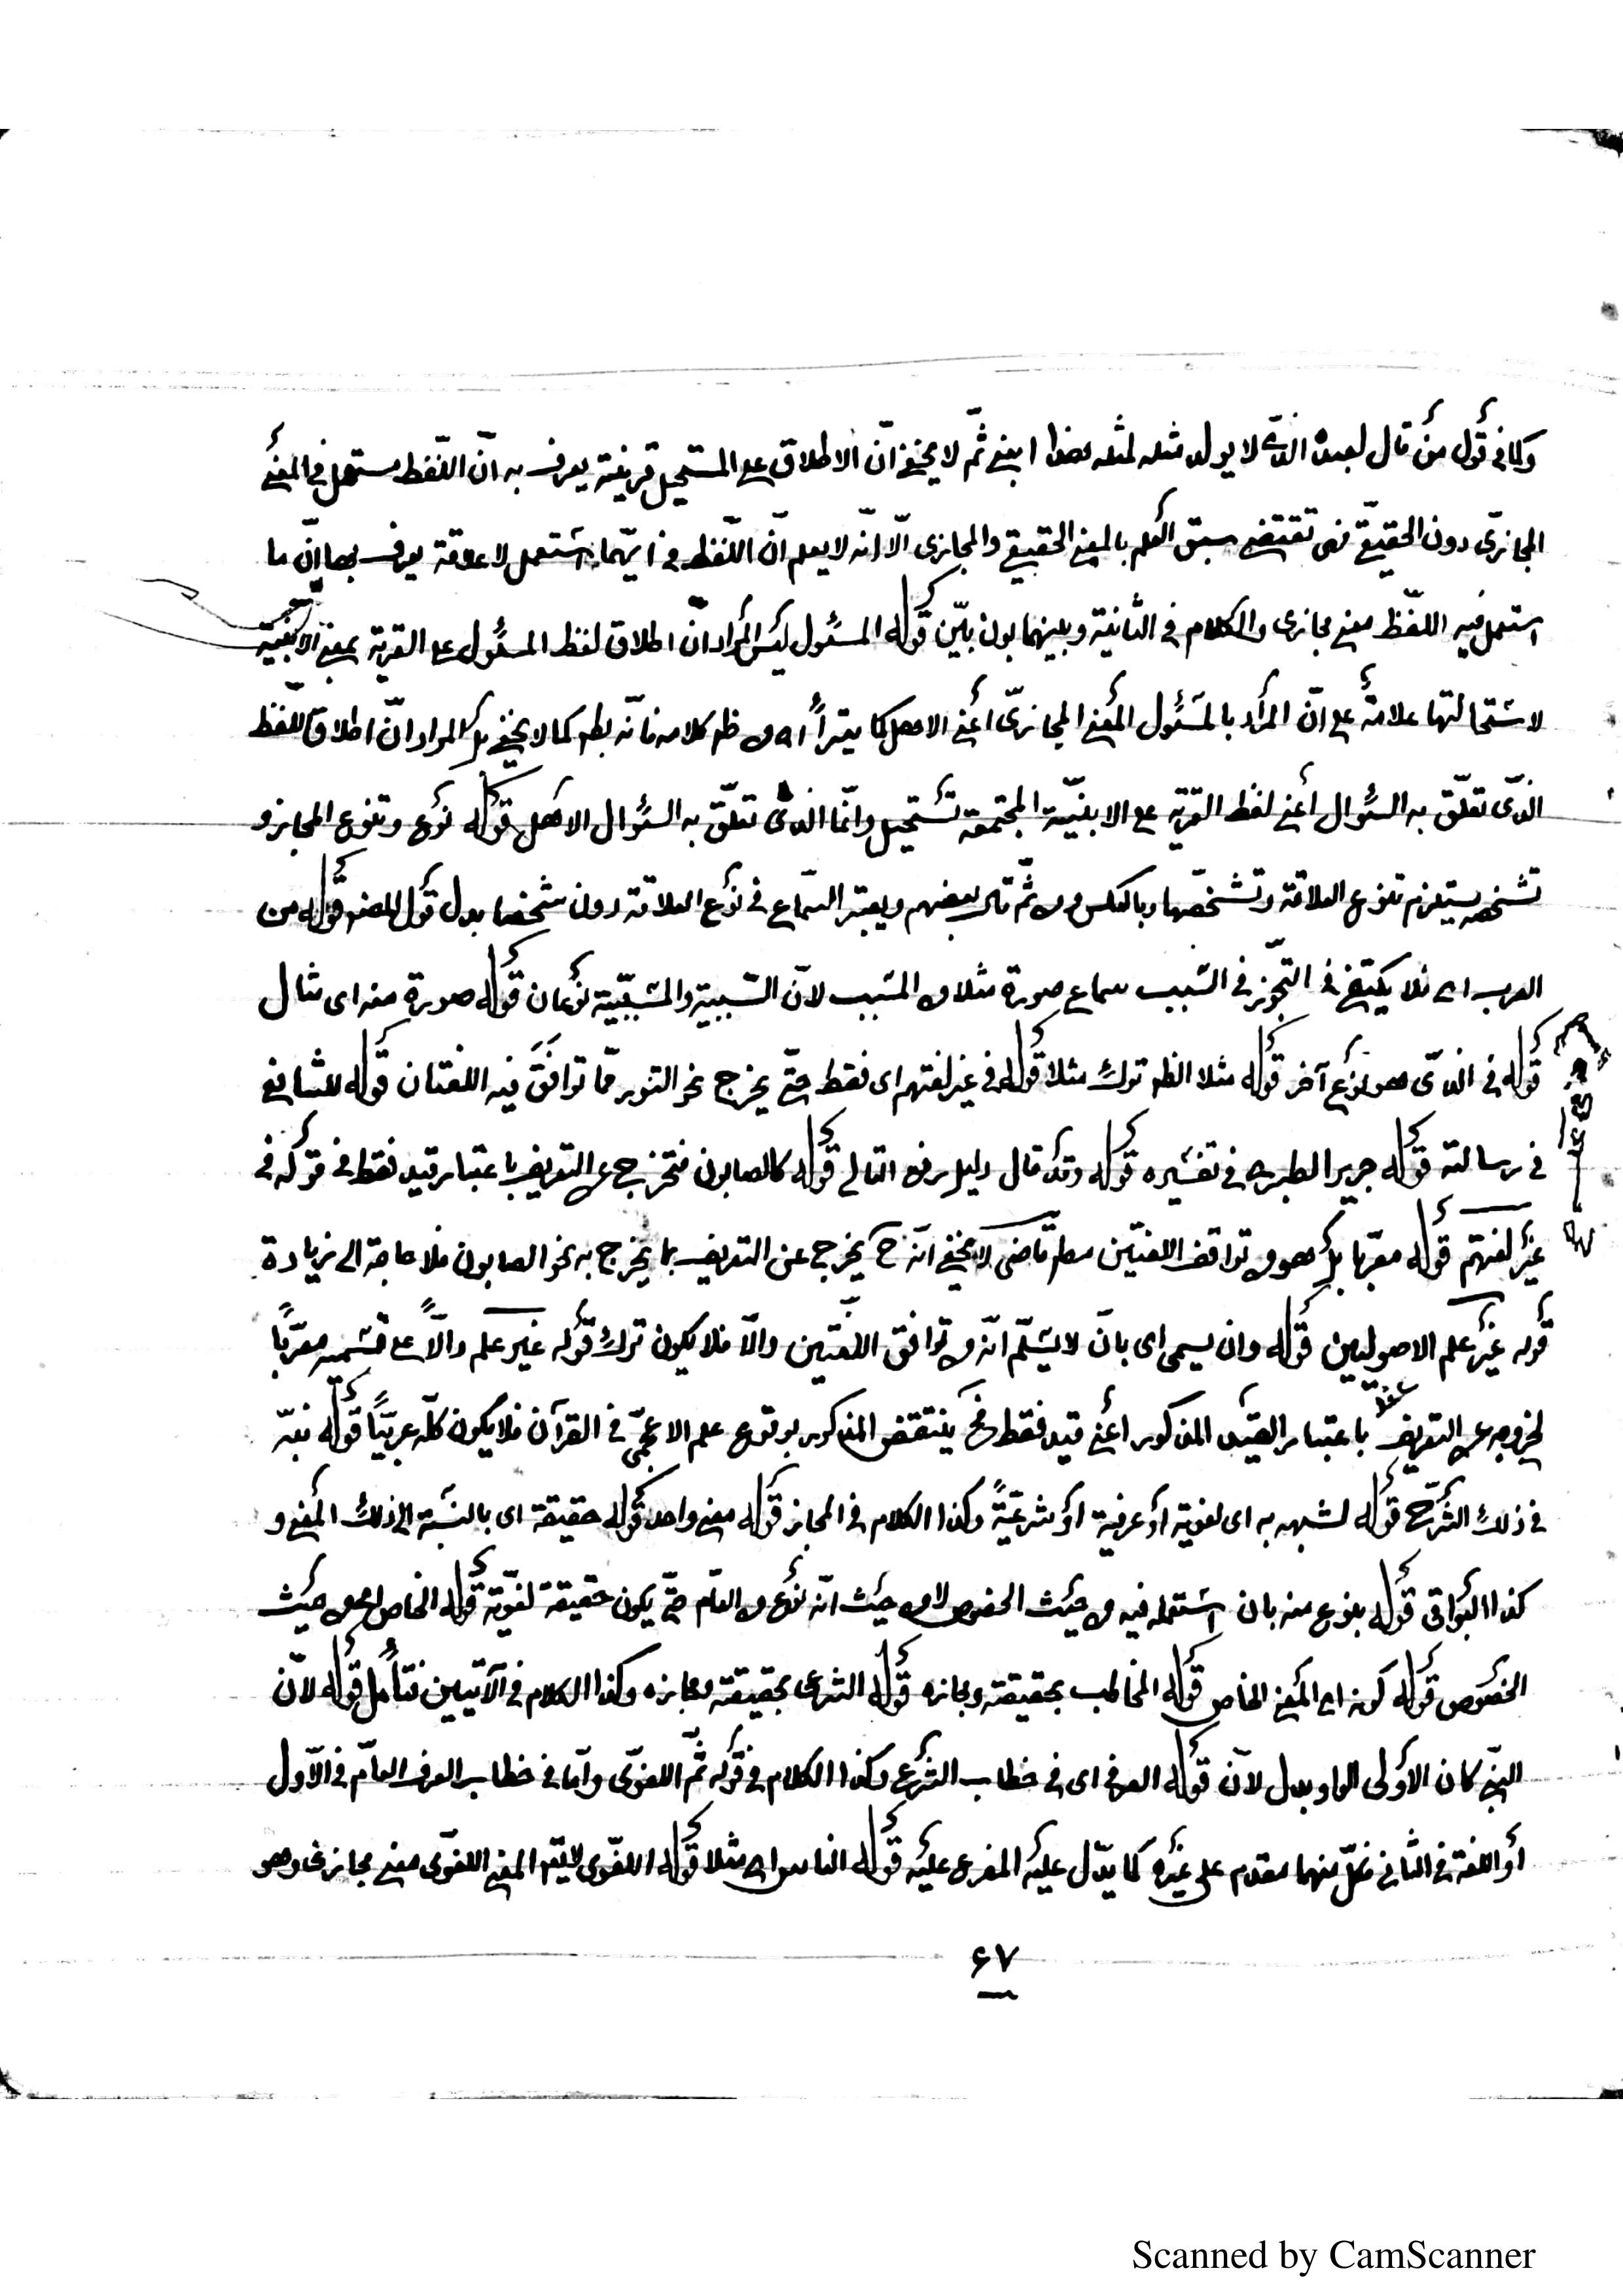 وكما في قول من قال لعبده الذى لا يولد مثله لمثله هذا ابني ثم لا يخفى انّ الاطلاق على المستحيل قرينة يعرف به انّ اللّفظ مستعمل في المعنى
المجازىّ دون الحقيقىّ فهى تقتضى سبق العلم بالمعنى الحقيقى والمجازى الّا انّه لا يعلم انّ اللّفظ في ايّهما استعمل لا علاقة يعرف بها انّ ما
استعمل فيه اللّفظ معنى مجازى والكلام في الثانية وبينهما بون بيّن قوله المسئول ليس المراد انّ اطلاق لفظ المسئول على القرية بمعنى الابنية
لاستحالتها علامة على انّ المراد بالمسئول المعنى المجازىّ اعنى الاهل كما يترا اى من ظ كلامه فانّه بط كما لا يخفى بل المراد انّ اطلاق اللّفظ
الذّى تعلّق به السؤال اعنى لفظ القرية على الابنيّة المجتمعة تستحيل وانّما الذى تعلّق به السؤال الاهل قوله نوع وتنوع المجاز و
تشخصه يستلزم تنوع العلاقة وتشخّصها وبالعكس ومن ثمّ قال بعضهم ويعتبر السّماع في نوع العلاقة دون شخصها بدل قول المص قوله من
العرب اى فلا يكتفى في التجّوز في السّبب سماع صورة مثلا من المسبب لانّ السّببية والمسّببيّة نوعان قوله صورة منه اى مثال
قوله في الذىّ هو نوع آخر قوله مثلا الظ ترك مثلا قوله في غير لغتهم اى فقط حتّى يخرج نحو التنور ممّا توافق فيه اللغتان قوله للشافعى
في رسالته قوله جرير الطبرى في تفسيره قوله وقد قال دليل رفع التالى قوله كالصابون فتخرج عن التعريف باعتبار قيد فقط في قوله في
غير لغتهم قوله معرّبا بل هو من توافق اللغتين لا يخفى انّه ح يخرج عن التعريف بما يخرج به نحو الصابون فلا حاجة الى زيادة
قوله غير علم الاصوليين قوله وان يسمى اى بان لا يسّلم انّه من توافق اللّغتين والّا فلا يكون ترك قوله غير علم والّاً على تسّميه معرّباً
لخروجه عن التعريف عنده باعتبار القيد المذكور اعنى قيد فقط فح ينتقض المذكور بوقوع علم الاعجمّى في القرآن فلا يكون كلّه عربيّاً قوله نبّه
في ذلك الشّرح قوله لشبهه به اى لغوية او عرفية او شرعيّةً وكذا الكلام في المجاز قوله معنى واحد قوله حقيقة اى بالنسّبة الى ذلك المعنى و
كذا البواقى قوله بنوع منه بان استعمله فيه من حيث الخصوص لا من حيث انّه نوع من العامّ حتّى يكون حقيقة لغوّية قوله الخاص اى من حيث
الخصوص قوله كونه اى المعنى الخاص قوله المخاطب بحقيقته ومجازه قوله الشرعى بحقيقته ومجازه وكذا الكلام في الآتيين فتأمل قوله لانّ
النبىّ كان الاولى الواو بدل لانّ قوله العرفى اى في خطاب الشّرع وكذا الكلام في قوله ثمّ اللغوّى وامّا في خطاب العرف العامّ في الاوّل
أو اللغة في الثانى فكلّ منهما مقدم على غيره كما يدّل عليه المفرع عليه قوله الناس اى مثلا قوله اللغّوى المعنى اللغوّى معنى مجازى وهو
۶۷
Scanned by CamScanner